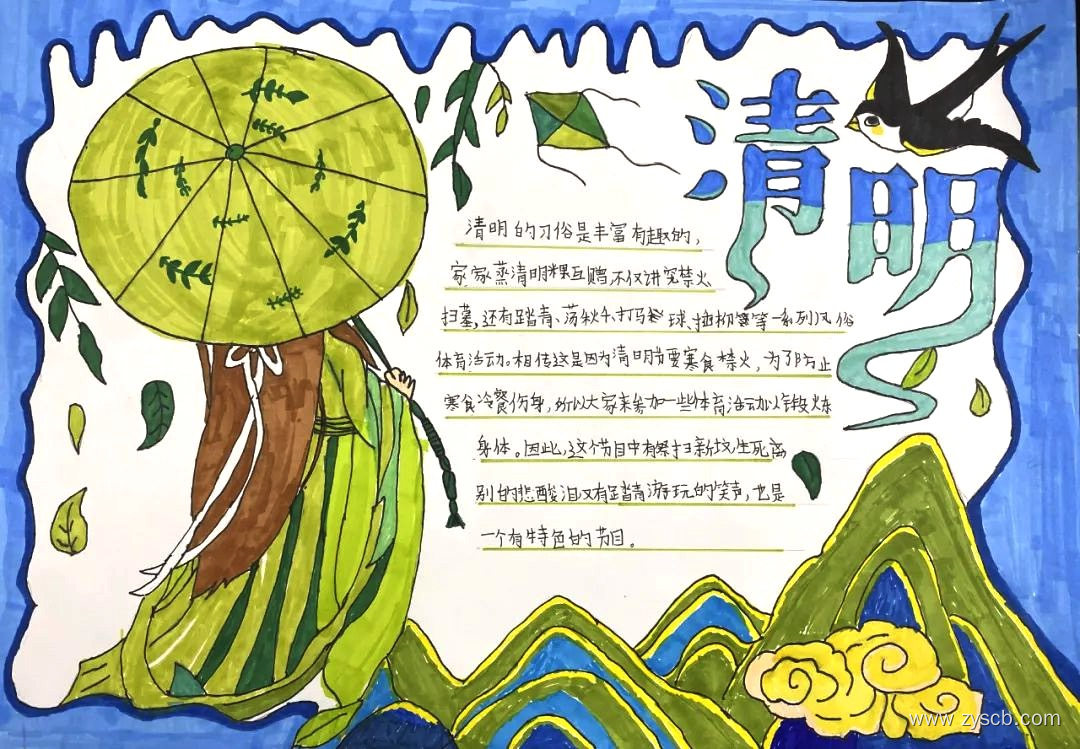 清明
清明的习俗是丰富有趣的，
家家蒸清明粿互赠不仅讲究禁火
扫墓，还有踏青、荡秋千、打马球、插柳等一系列风俗
体育活动。相传这是因为清明节要寒食禁火，为了防止
寒食冷餐伤身，所以大家来参加一些体育活动以锻炼
身体。因此，这个节目中有祭扫新坟生死离
别的悲酸泪又有踏青游玩的笑声，也是
一个有特色的节目。
www.zyscb.com